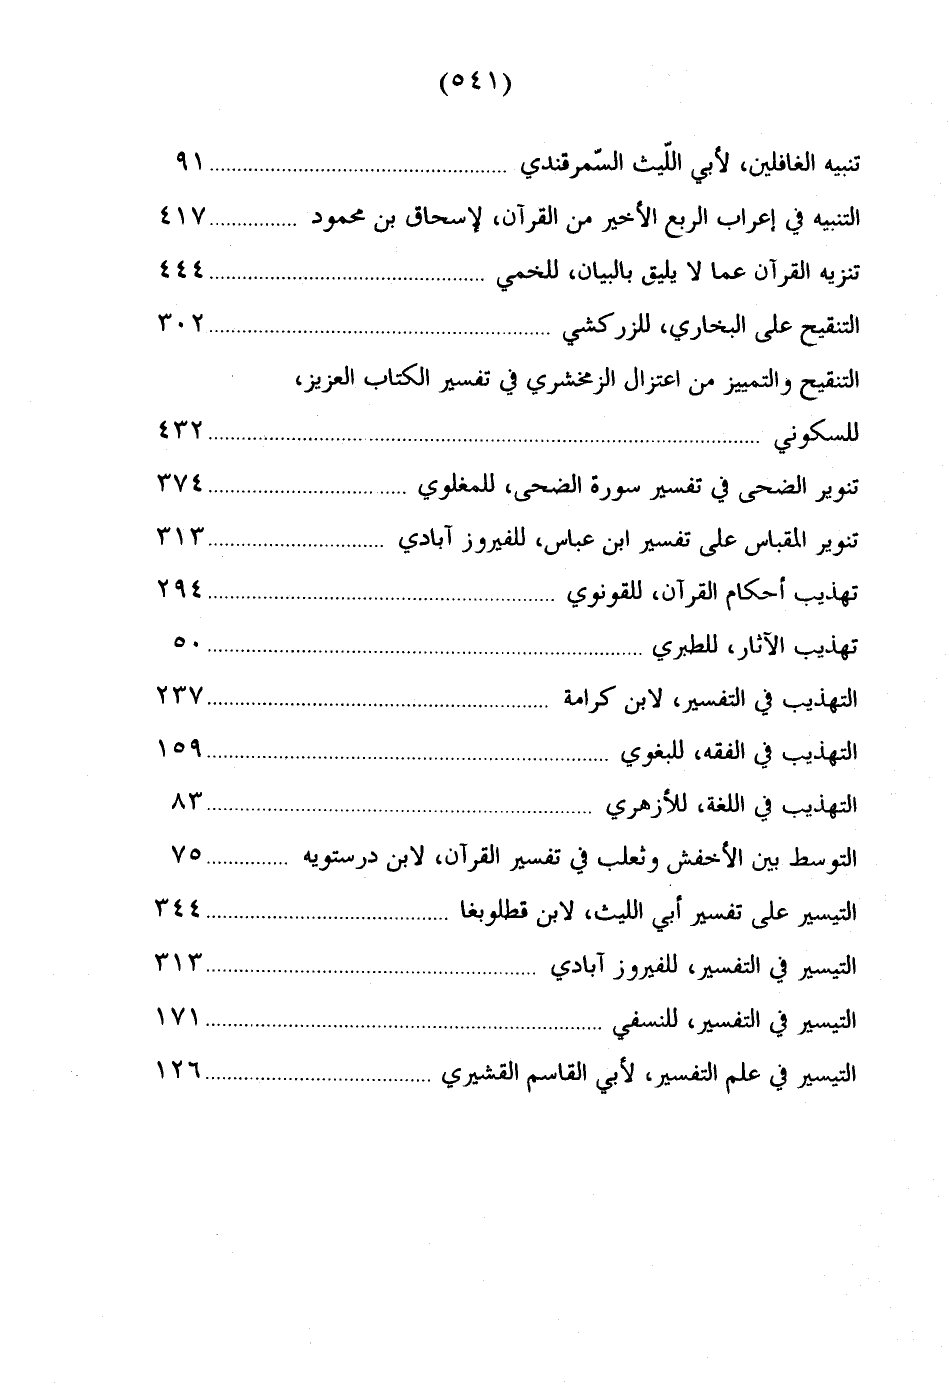 (٥٤١)
تنبيه الغافلين، لأبي اللّيث السّمرقندي ........ ٩١
التنبيه في إعراب الربع الأخير من القرآن، لإسحاق بن محمود ........ ٤١٧
تنزيه القرآن عما لا يليق بالبيان، للخمي ........ ٤٤٤
التنقيح على البخاري، للزركشي ........ ٣٠٢
التنقيح والتمييز من اعتزال الزمخشري في تفسير الكتاب العزيز،
للسكوني ........ ٤٣٢
تنوير الضحى في تفسير سورة الضحى، للمغلوي ........ ٣٧٤
تنوير المقباس على تفسير ابن عباس، للفيروز آبادي ........ ٣١٣
تهذيب أحكام القرآن، للقونوي ........ ٢٩٤
تهذيب الآثار، للطبري ........ ٥٠
التهذيب في التفسير، لابن كرامة ........ ٢٣٧
التهذيب في الفقه، للبغوي ........ ١٥٩
التهذيب في اللغة، للأزهري ........ ٨٣
التوسط بين الأخفش وثعلب في تفسير القرآن، لابن درستويه ........ ٧٥
التيسير على تفسير أبي الليث، لابن قطلوبغا ........ ٣٤٤
التيسير في التفسير، للفيروز آبادي ........ ٣١٣
التيسير في التفسير، للنسفي ........ ١٧١
التيسير في علم التفسير، لأبي القاسم القشيري ........ ١٢٦